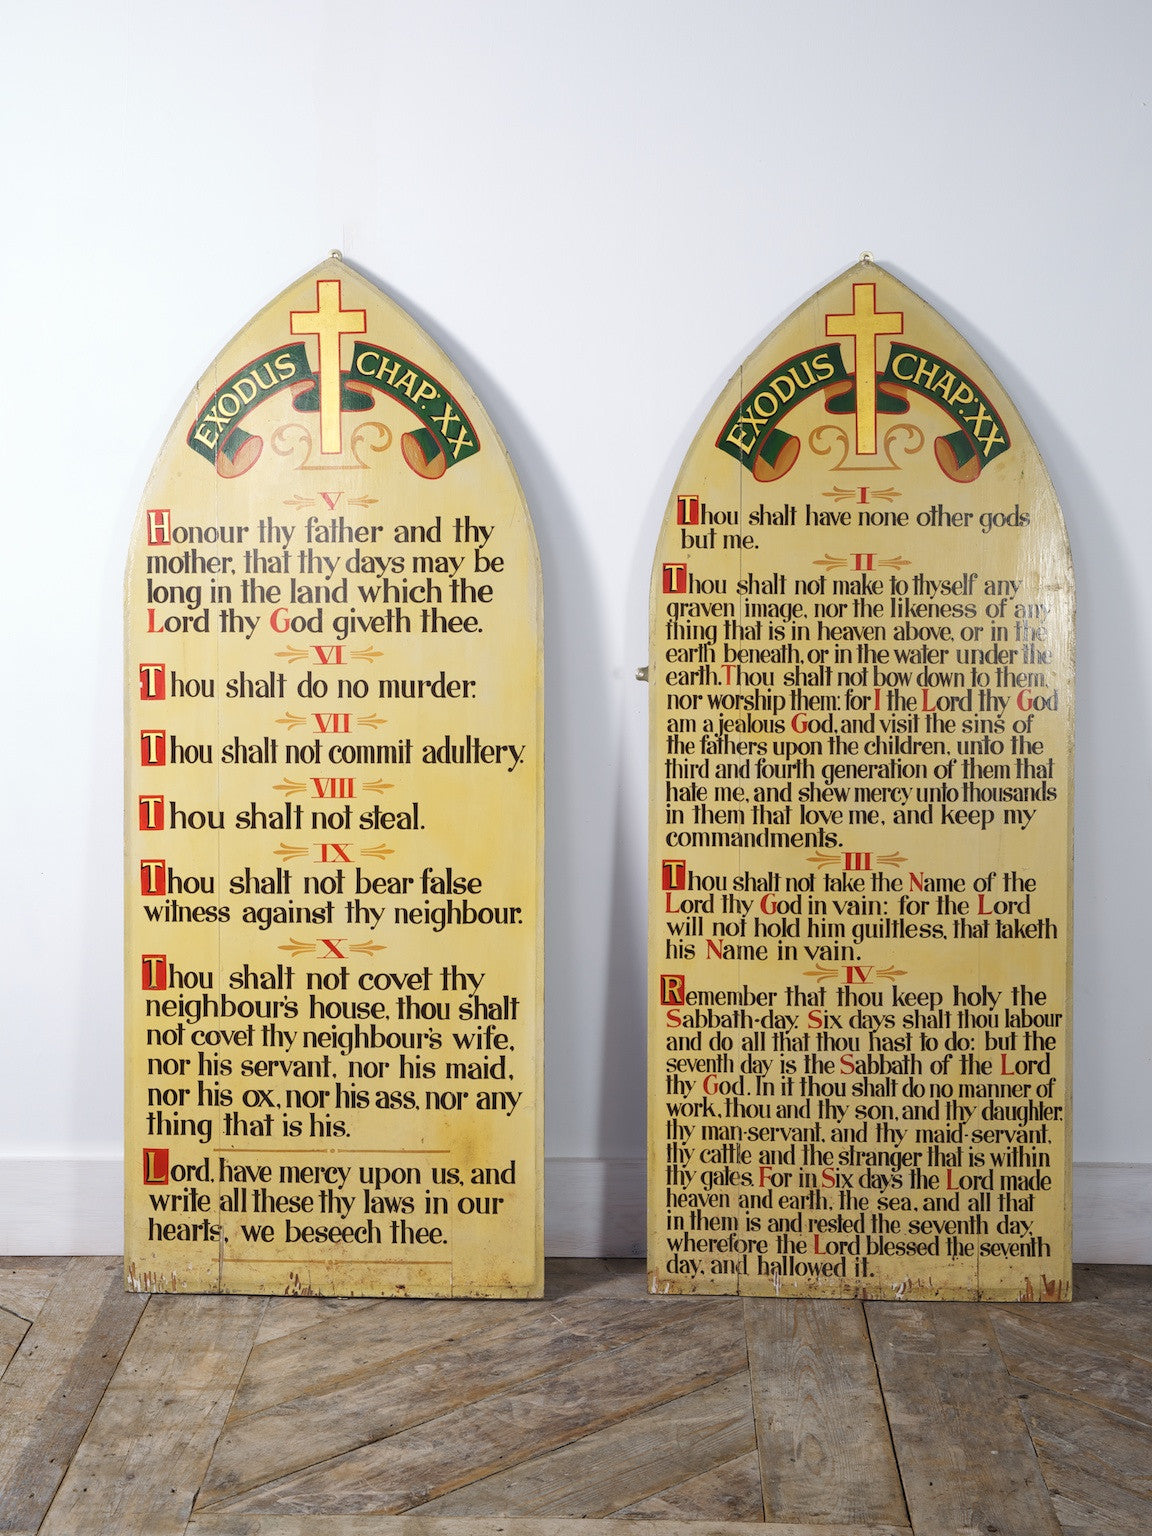 EXODUS CHAP: XX
V
Honour thy father and thy
mother, that thy days may be
long in the land which the
Lord thy God giveth thee.
VI
Thou shalt do no murder.
VII
Thou shalt not commit adultery.
VIII
Thou shalt not steal.
IX
Thou shalt not bear false
witness against thy neighbour.
X
Thou shalt not covet thy
neighbour's house, thou shalt
not covet thy neighbour's wife,
nor his servant, nor his maid,
nor his ox, nor his ass, nor any
thing that is his.
Lord, have mercy upon us, and
write all these thy laws in our
hearts, we beseech thee.
EXODUS CHAP: XX
I
Thou shalt have none other gods
but me.
II
Thou shalt not make to thyself any
graven image, nor the likeness of any
thing that is in heaven above, or in the
earth beneath, or in the water under the
earth. Thou shalt not bow down to them,
nor worship them: for I the Lord thy God
am a jealous God, and visit the sins of
the fathers upon the children, unto the
third and fourth generation of them that
hate me, and shew mercy unto thousands
in them that love me, and keep my
commandments.
III
Thou shalt not take the Name of the
Lord thy God in vain: for the Lord
will not hold him guiltless, that taketh
his Name in vain.
IV
Remember that thou keep holy the
Sabbath-day. Six days shalt thou labour
and do all that thou hast to do: but the
seventh day is the Sabbath of the Lord
thy God. In it thou shalt do no manner of
work, thou and thy son, and thy daughter,
thy man-servant, and thy maid-servant,
thy cattle and the stranger that is within
thy gates. For in Six days the Lord made
heaven and earth, the sea, and all that
in them is and rested the seventh day,
wherefore the Lord blessed the seventh
day, and hallowed it.